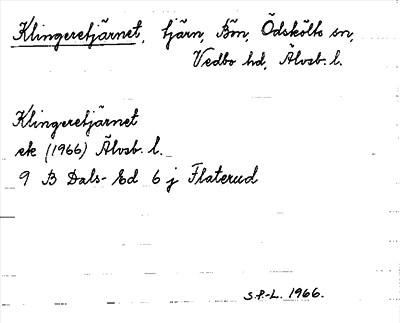 Klingeretjärnet, tjärn, Bön, Ödskölts sn,
Vedbo hd, Älvsb. l.
Klingeretjärnet
ek (1966) Älvsb. l.
9 B Dals-Ed 6 j Flaterud
S.P.-L. 1966.